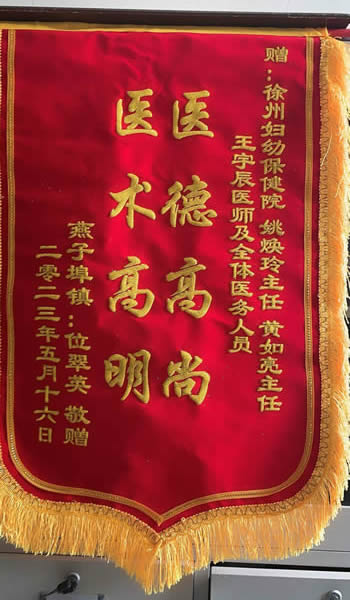 赠：徐州妇幼保健院 姚焕玲主任 黄如亮主任
王宇辰医师及全体医务人员
医德高尚
医术高明
燕子埠镇：位翠英 敬赠
二零二三年五月十六日